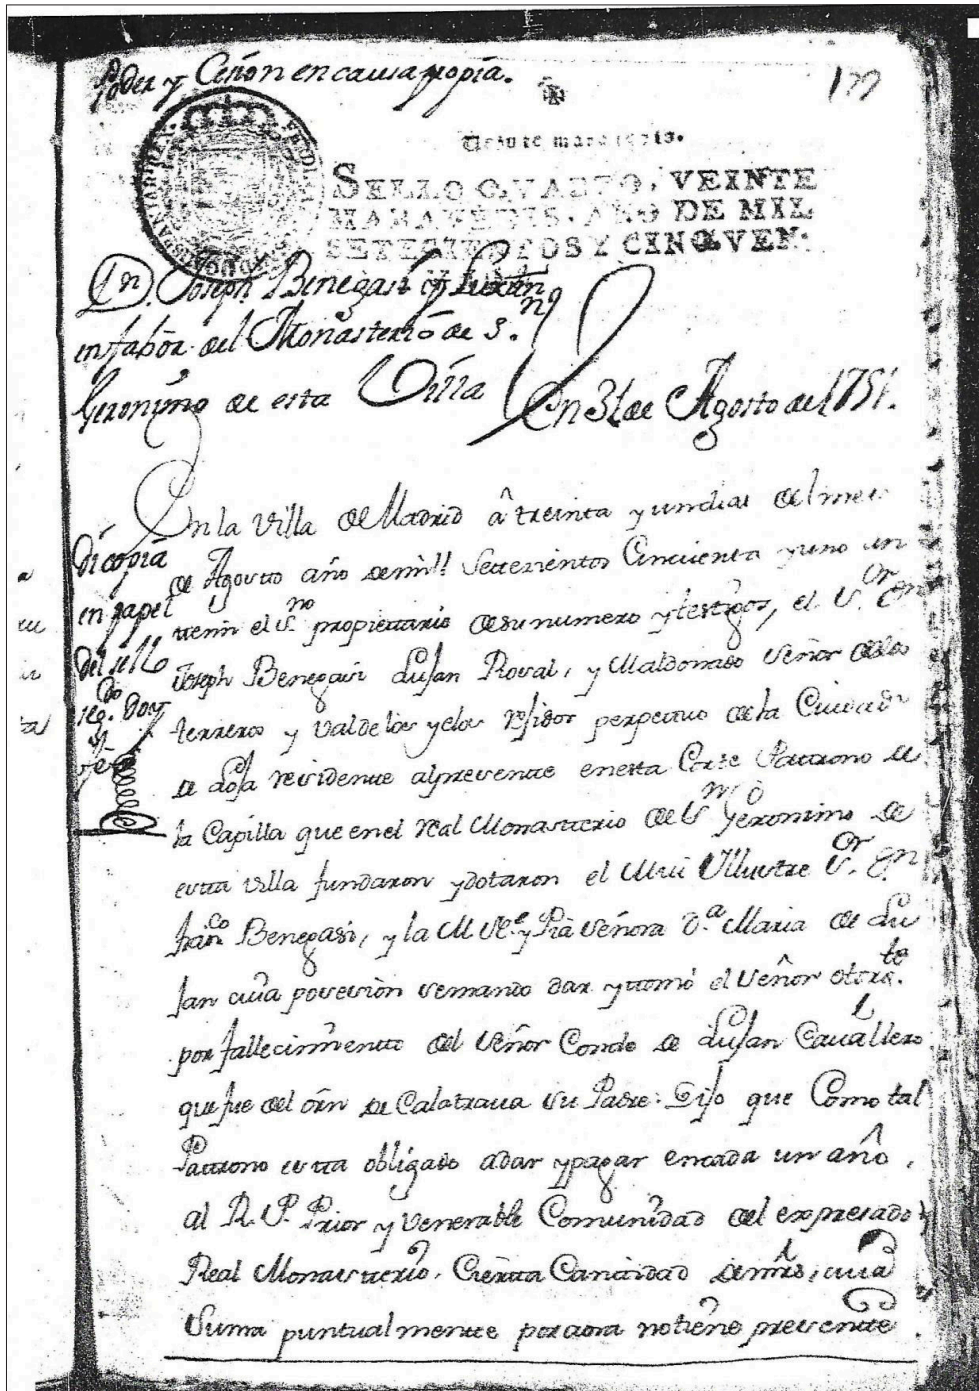 Poder y Cesion en causa propia.
177
Veinte maravedis.
SELLO QVARTO, VEINTE
MARAVEDIS, AÑO DE MIL
SETECIENTOS Y CINQVEN-
Dn. Joseph Benegasi y Luxan
en fabor del Monasterio de S.n
Geronimo de esta Villa
En 31 de Agosto de 1751.
En la Villa de Madrid â treinta y un dias del mes
de Agosto año de mill Settezientos Cinquenta y uno an
temi el S.no propiettario de su numero y testigos, el S.or Dn
Joseph Benegasi Lujan Roval, y Maldonado Señor de los
terreros y Valdelos yelos rejidor perpetuo de la Ciudad
de Loja residente al presente en esta Corte Pattrono de
la Capilla que en el Real Monasterio de Sn Geronimo de
esta villa fundaron y dotaron el Mui Illustre S.or Dn
Franco Benegasi, y la M Ile y Pia Señora D.a Maria de Lu
jan cuia posesiòn se mando dar y tomó el Señor otorgte.
por fallecimientto del Señor Conde de Lujan Cauallero
que fue del ôrn de Calatraua su Padre: Dijo que Como tal
Pattrono estta obligado a dar y pagar en cada un año,
al R. P. Prior y Venerable Comunidad del expresado
Real Monastterio, Ciertta Canttidad de mrs, cuia
Suma puntualmentte por aora no tiene presentte
di copia
en papel
del sello
seg.do Doy
fee